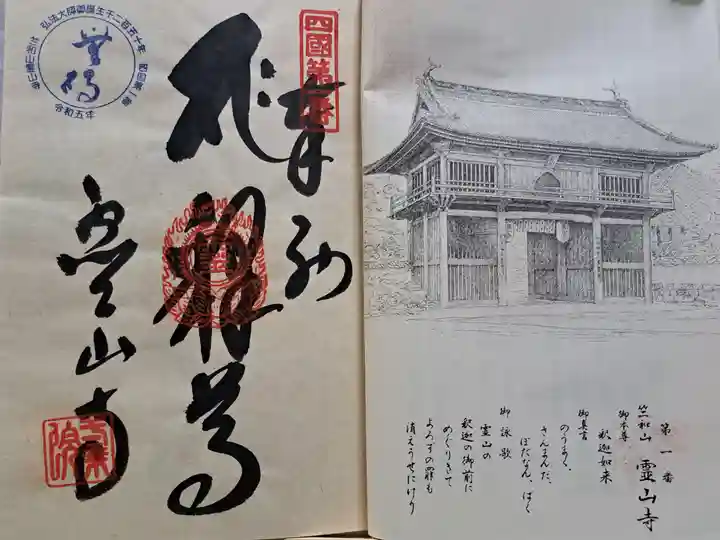 第一番
竺和山 霊山寺
御本尊
釈迦如来
御真言
のうまく、
さんまんだ、
ぼだなん、ばく
御詠歌
霊山の
釈迦の御前に
めぐりきて
よろずの罪も
消えうせにけり
四國第一番
奉納
釈迦尊
霊山寺
弘法大師御誕生千二百五十年
四国第一番
令和五年